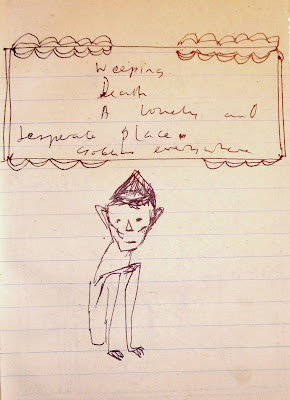 Weeping
Death
A lonely and
Desperate place.
Goblins everywhere